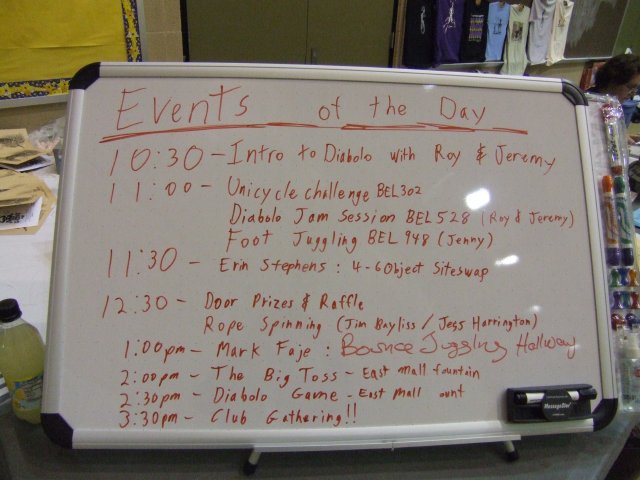 Events of the Day
10:30 - Intro to Diabolo with Roy & Jeremy
11:00 - Unicycle challenge BEL302
Diabolo Jam Session BEL 528 (Roy & Jeremy)
Foot Juggling BEL 948 (Jenny)
11:30 - Erin Stephens : 4-6 Object Siteswap
12:30 - Door Prizes & Raffle
Rope Spinning (Jim Bayliss / Jess Harrington)
1:00pm - Mark Faje : Bounce Juggling Hallway
2:00pm - The Big Toss - East mall fountain
2:30pm - Diabolo Game - East mall ount
3:30pm - Club Gathering!!